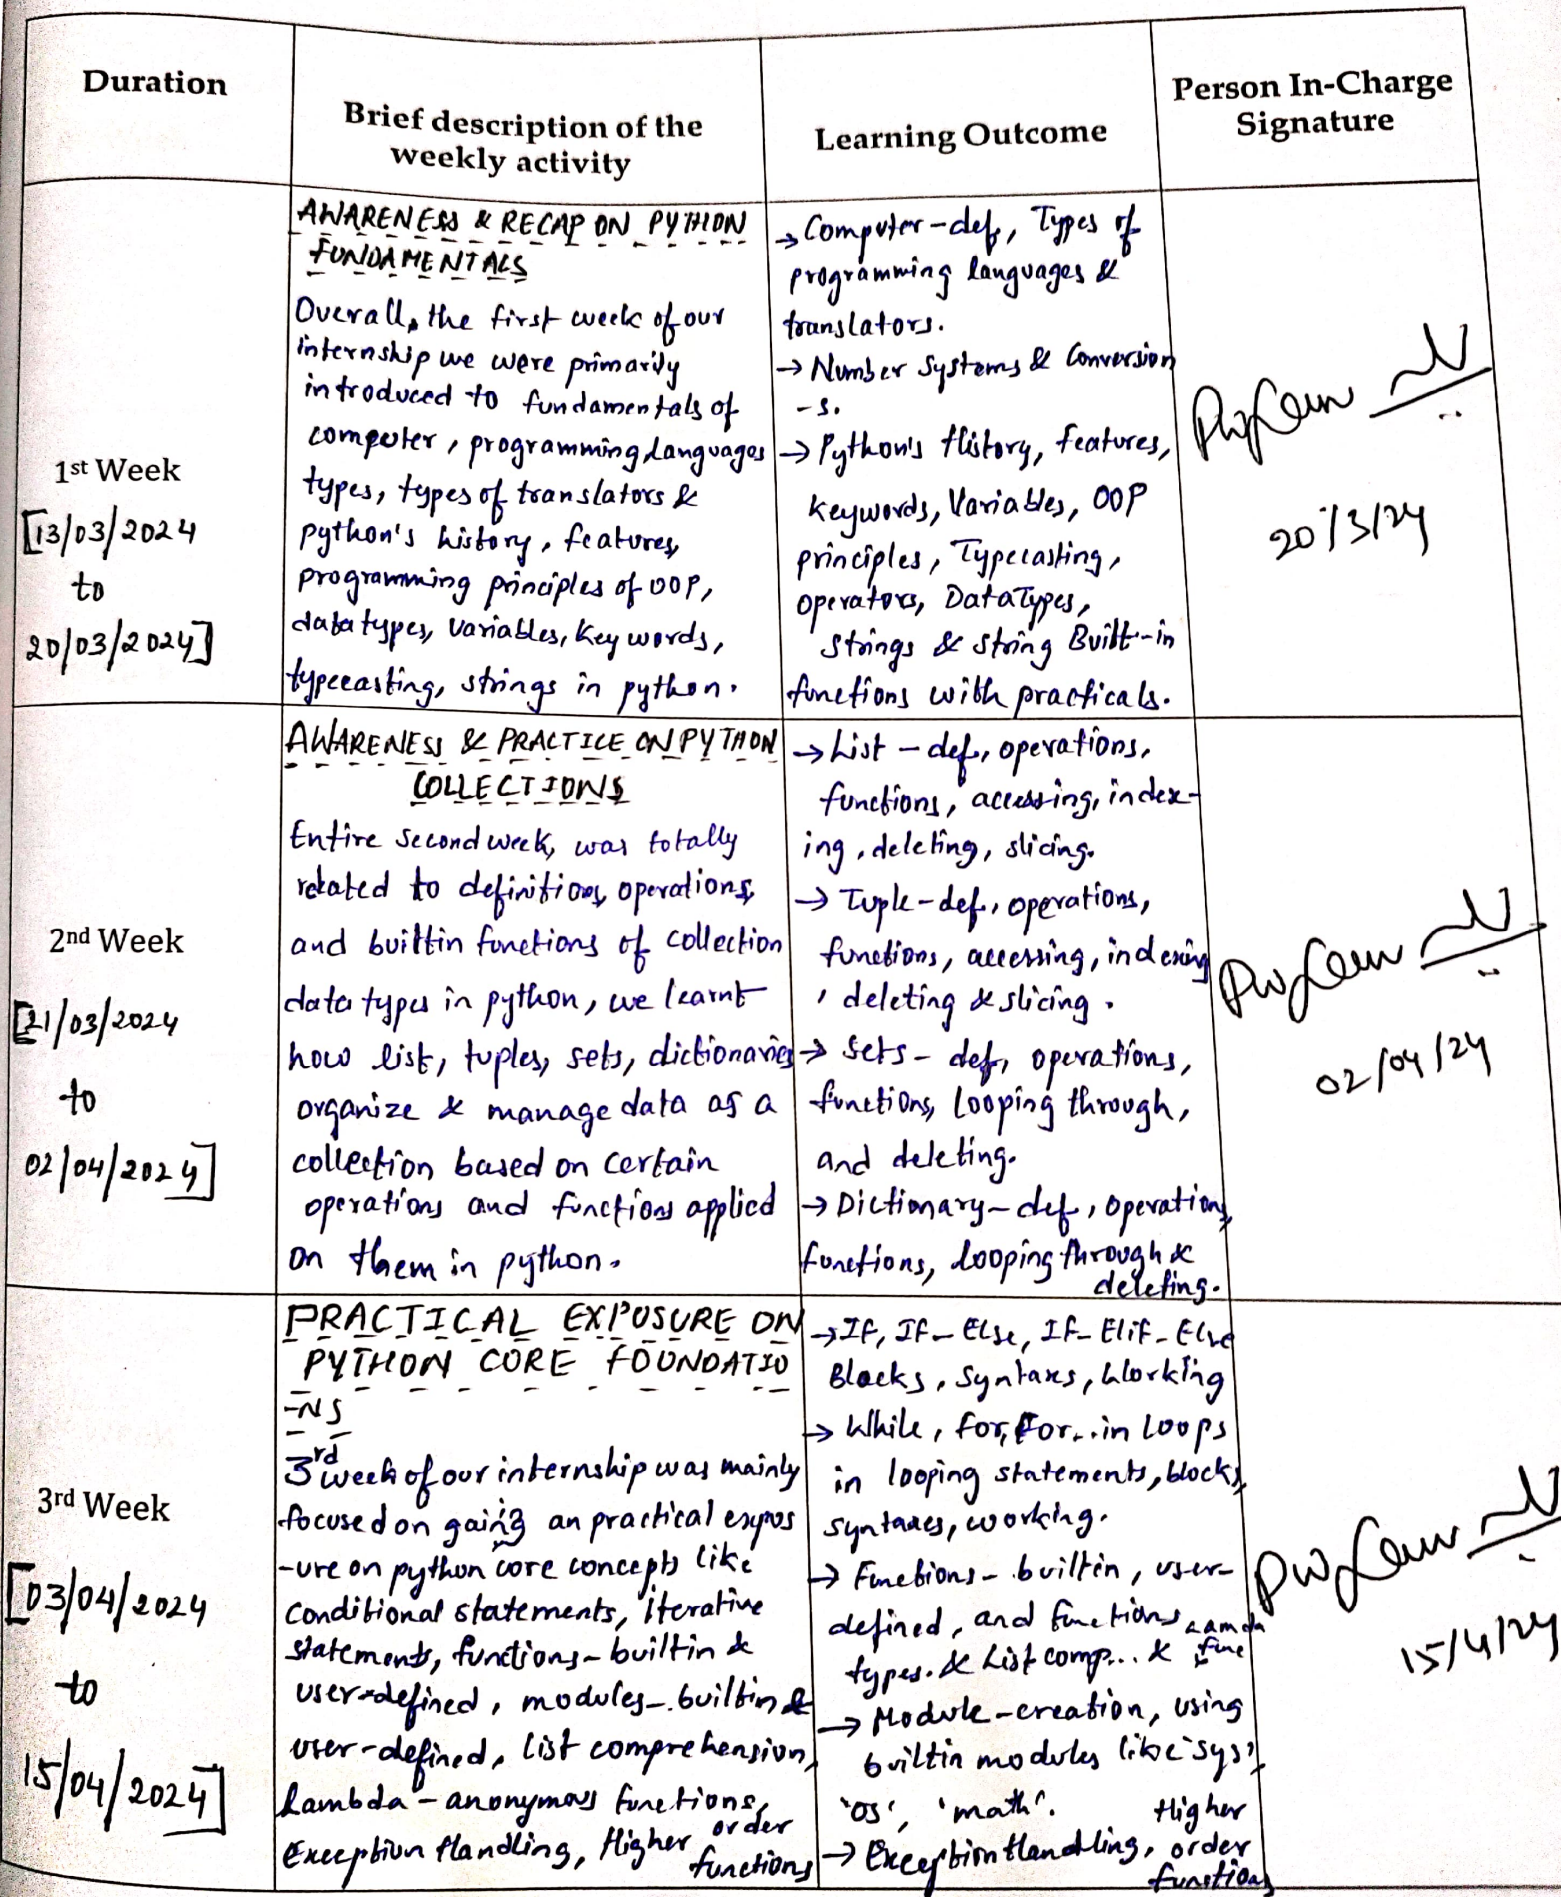 Duration
Brief description of the
weekly activity
Learning Outcome
Person In-Charge
Signature
1st Week
[13/03/2024
to
20/03/2024]
AWARENESS & RECAP ON PYTHON
FUNDAMENTALS
Overall, the first week of our
internship we were primarily
introduced to fundamentals of
computer, programming languages
types, types of translators &
python's history, features,
programming principles of OOP,
datatypes, variables, keywords,
typecasting, strings in python.
→ Computer - def, Types of
programming languages &
translators.
→ Number Systems & Conversion
-s.
→ Python's History, features,
keywords, Variables, OOP
principles, Typecasting,
operators, DataTypes,
strings & string Built-in
functions with practicals.
20/3/24
2nd Week
[21/03/2024
to
02/04/2024]
AWARENESS & PRACTICE ON PYTHON
COLLECTIONS
Entire second week, was totally
related to definitions, operations,
and builtin functions of collection
data types in python, we learnt
how list, tuples, sets, dictionaries
organize & manage data as a
collection based on certain
operations and functions applied
on them in python.
→ List - def, operations,
functions, accessing, index-
ing, deleting, slicing.
→ Tuple - def, operations,
functions, accessing, indexing
, deleting & slicing.
→ Sets - def, operations,
functions, looping through,
and deleting.
→ Dictionary - def, operations,
functions, looping through &
deleting.
02/04/24
3rd Week
[03/04/2024
to
15/04/2024]
PRACTICAL EXPOSURE ON
PYTHON CORE FOUNDATIO
-NS
3rd week of our internship was mainly
focused on gaing an practical expos
-ure on python core concepts like
conditional statements, iterative
statements, functions - builtin &
user-defined, modules - builtin &
user-defined, list comprehension,
Lambda - anonymous functions,
Exception Handling, Higher order
functions
→ If, If-Else, If-Elif-Else
Blocks, syntaxes, Working
→ While, for, For..in loops
in looping statements, blocks,
syntaxes, working.
→ Functions - builtin, user-
defined, and functions Lamda
types. & List comp... & func
→ Module - creation, using
builtin modules like 'sys',
'os', 'math'.
→ Exception Handling, Higher order
functions
15/4/24